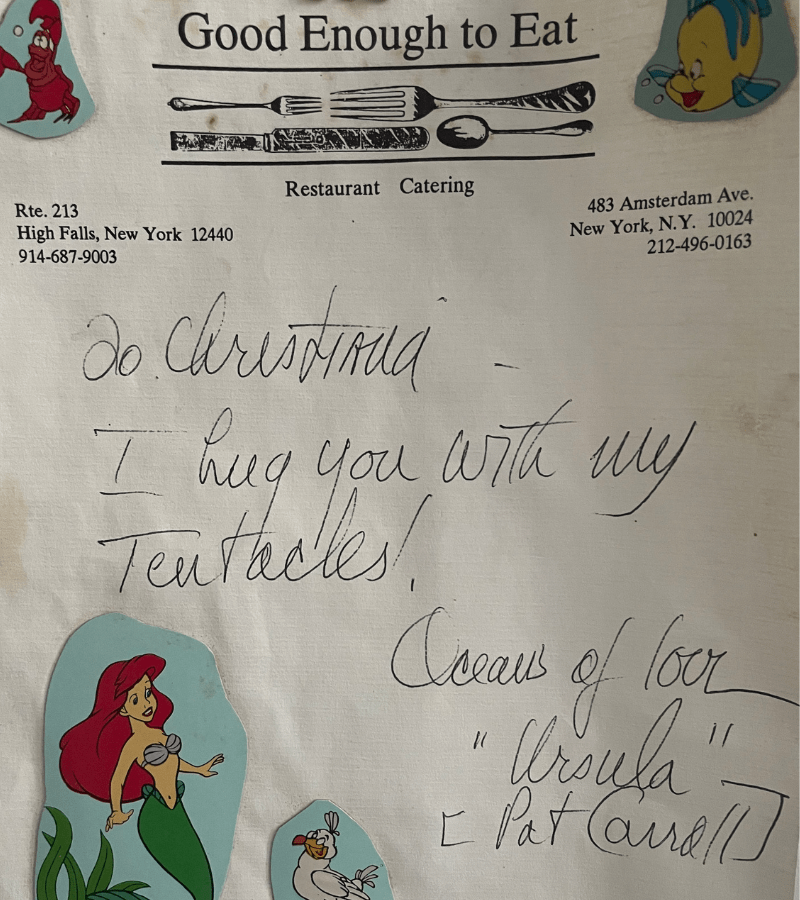 Good Enough to Eat
Restaurant Catering
Rte. 213
High Falls, New York 12440
914-687-9003
483 Amsterdam Ave.
New York, N.Y. 10024
212-496-0163
To Christiana -
I hug you with my
Tentacles!
Oceans of love
"Ursula"
[Pat Carroll]